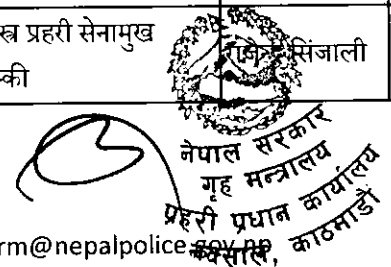 स्त्र प्रहरी सेनामुख
सिंजाली
स्की
नेपाल सरकार
गृह मन्त्रालय
प्रहरी प्रधान कार्यालय
नक्साल, काठमाडौं
rm@nepalpolice.gov.np